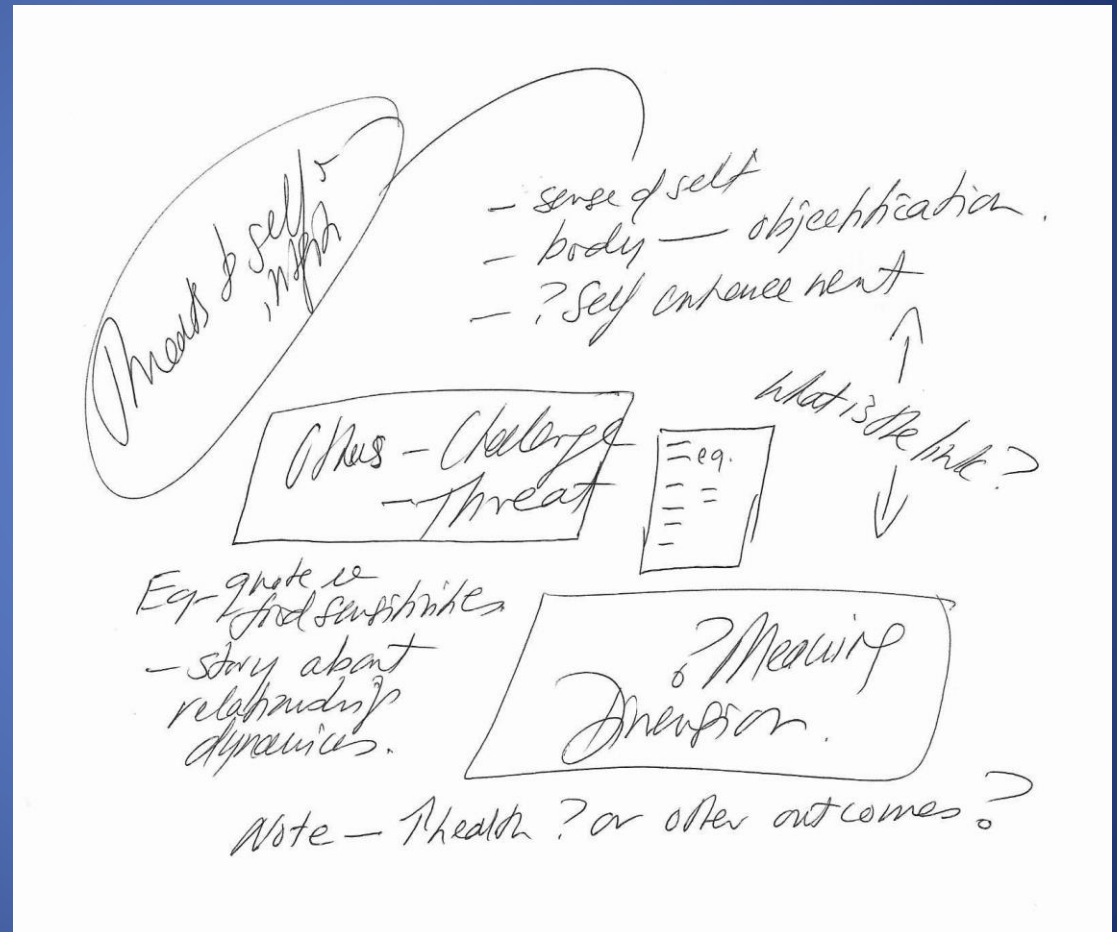 Threats to self
- sense of self
- body — objectification.
- ? Self enhancement
What is the link?
Others - Challenge
- Threat
eg.
Eg - quote re
food sensitivities
- story about
relationship
dynamics.
? Meaning
Dimension.
Note — ↑health ? or other outcomes ?